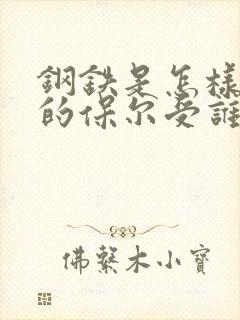 鋼鉄是怎樣
的保尔受誰
佛系木小寶